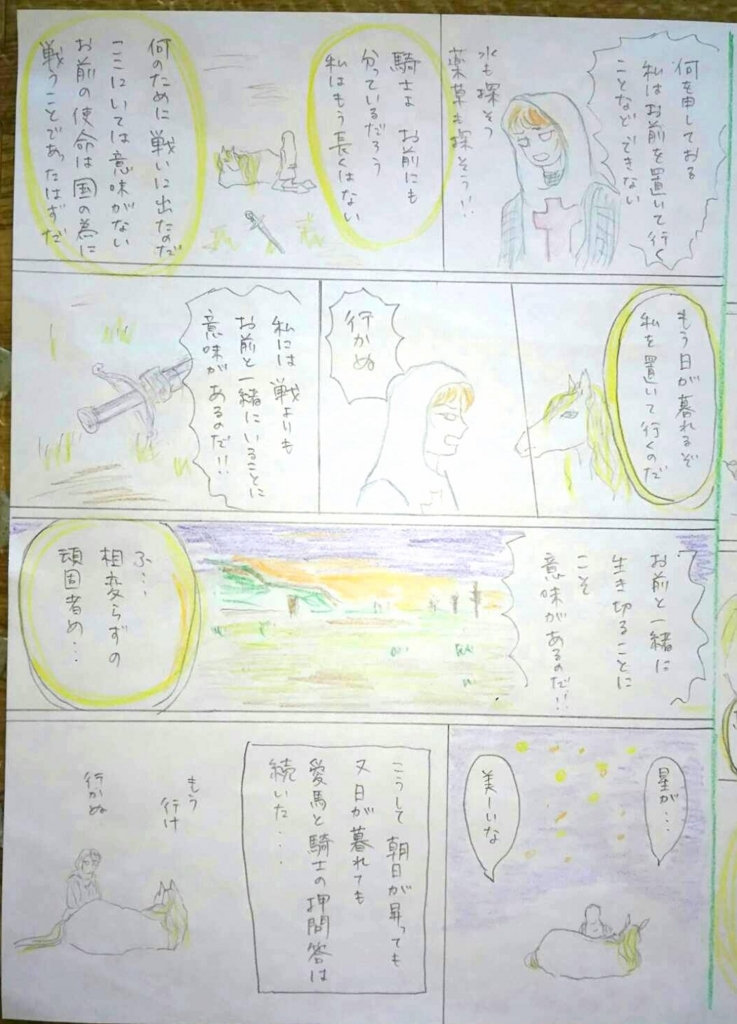 何を申しておる
私はお前を置いて行く
ことなどできない
水も探そう
薬草も探そう!!
騎士よ お前にも
分っているだろう
私はもう長くはない
何のために戦いに出たのだ
ここにいては意味がない
お前の使命は国の為に
戦うことであったはずだ
もう日が暮れるぞ
私を置いて行くのだ
行かぬ
私には戦よりも
お前と一緒にいることに
意味があるのだ!!
お前と一緒に
生き切ることに
こそ
意味があるのだ!!
ふ・・・
相変らずの
頑固者め・・・
星が・・・
美しいな
こうして朝日が昇っても
又日が暮れても
愛馬と騎士の押問答は
続いた・・・
もう
行け
行かぬ